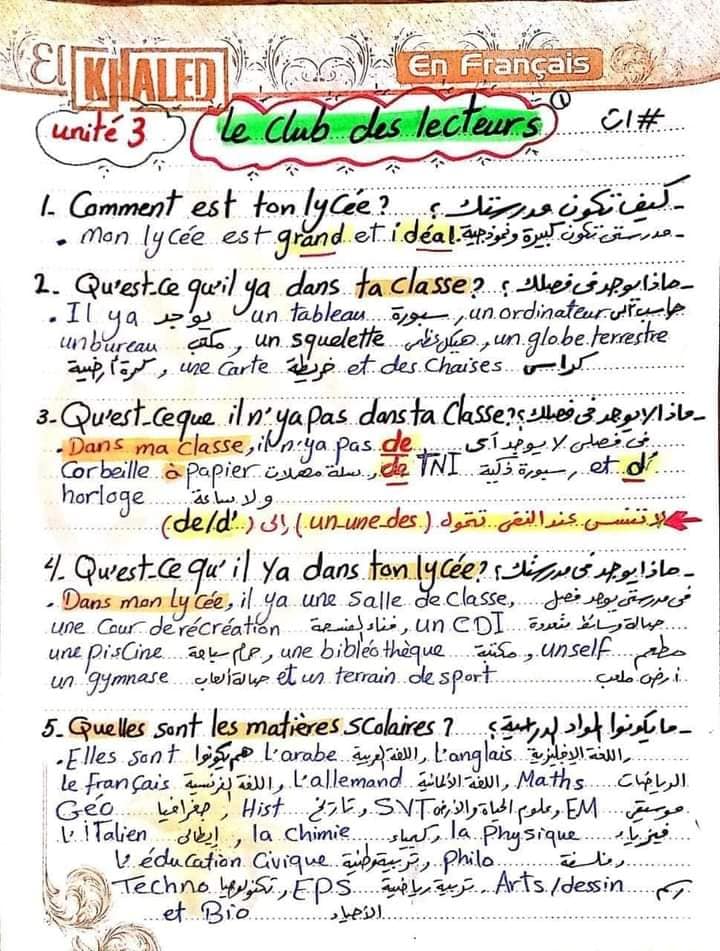 El KHALED En Français
unité 3 le Club des lecteurs ① #ات
1- Comment est ton lycée? كيف تكون مدرستك ؟ -
• Mon lycée est grand et idéal. مدرستى تكون كبيرة ونموذجية -
2- Qu'est-ce qu'il ya dans ta classe? ماذا يوجد فى فصلك ؟ -
• Il ya يوجد un tableau سبورة , un ordinateur حاسب آلى
un bureau مكتب , un squelette هيكل عظمى , un globe terrestre
كرة أرضية , une Carte خريطة et des Chaises كراسى
3- Qu'est-ce que il n'ya pas dans ta Classe? ماذا لا يوجد فى فصلك؟ -
• Dans ma classe, il n'ya pas de فى فصلى لا يوجد أى
Corbeille à papier سلة مهملات , de TNI سبورة ذكية , et d'
horloge ولا ساعة
لا تنسى عند النفى تتحول (un-une-des) إلى (de/d')
4- Qu'est-ce qu'il Ya dans ton lycée? ماذا يوجد فى مدرستك؟ -
• Dans mon Lycée, il ya une Salle de Classe, فى مدرستى يوجد فصل
une Cour de récréation فناء الفسحة , un CDI صالة وسائط متعددة
une piscine حمام سباحة , une bibléothèque مكتبة , un self مطعم
un gymnase صالة ألعاب et un terrain de sport أرض ملعب
5- Quelles sont les matières scolaires ? ما يكونوا المواد الدراسية ؟ -
• Elles sont هم يكونوا L'arabe اللغة العربية , L'anglais اللغة الإنجليزية ,
le français اللغة الفرنسية , L'allemand اللغة الألمانية , Maths الرياضيات
Géo جغرافيا , Hist تاريخ , SVT علوم الحياة والأرض , EM موسيقى
L'iTalien إيطالى , la Chimie كيمياء , la Physique فيزياء
L'éducation Civique تربية وطنية , Philo فلسفة ,
Techno تكنولوجيا , EPS تربية رياضية , Arts/dessin رسم
et Bio الأحياء